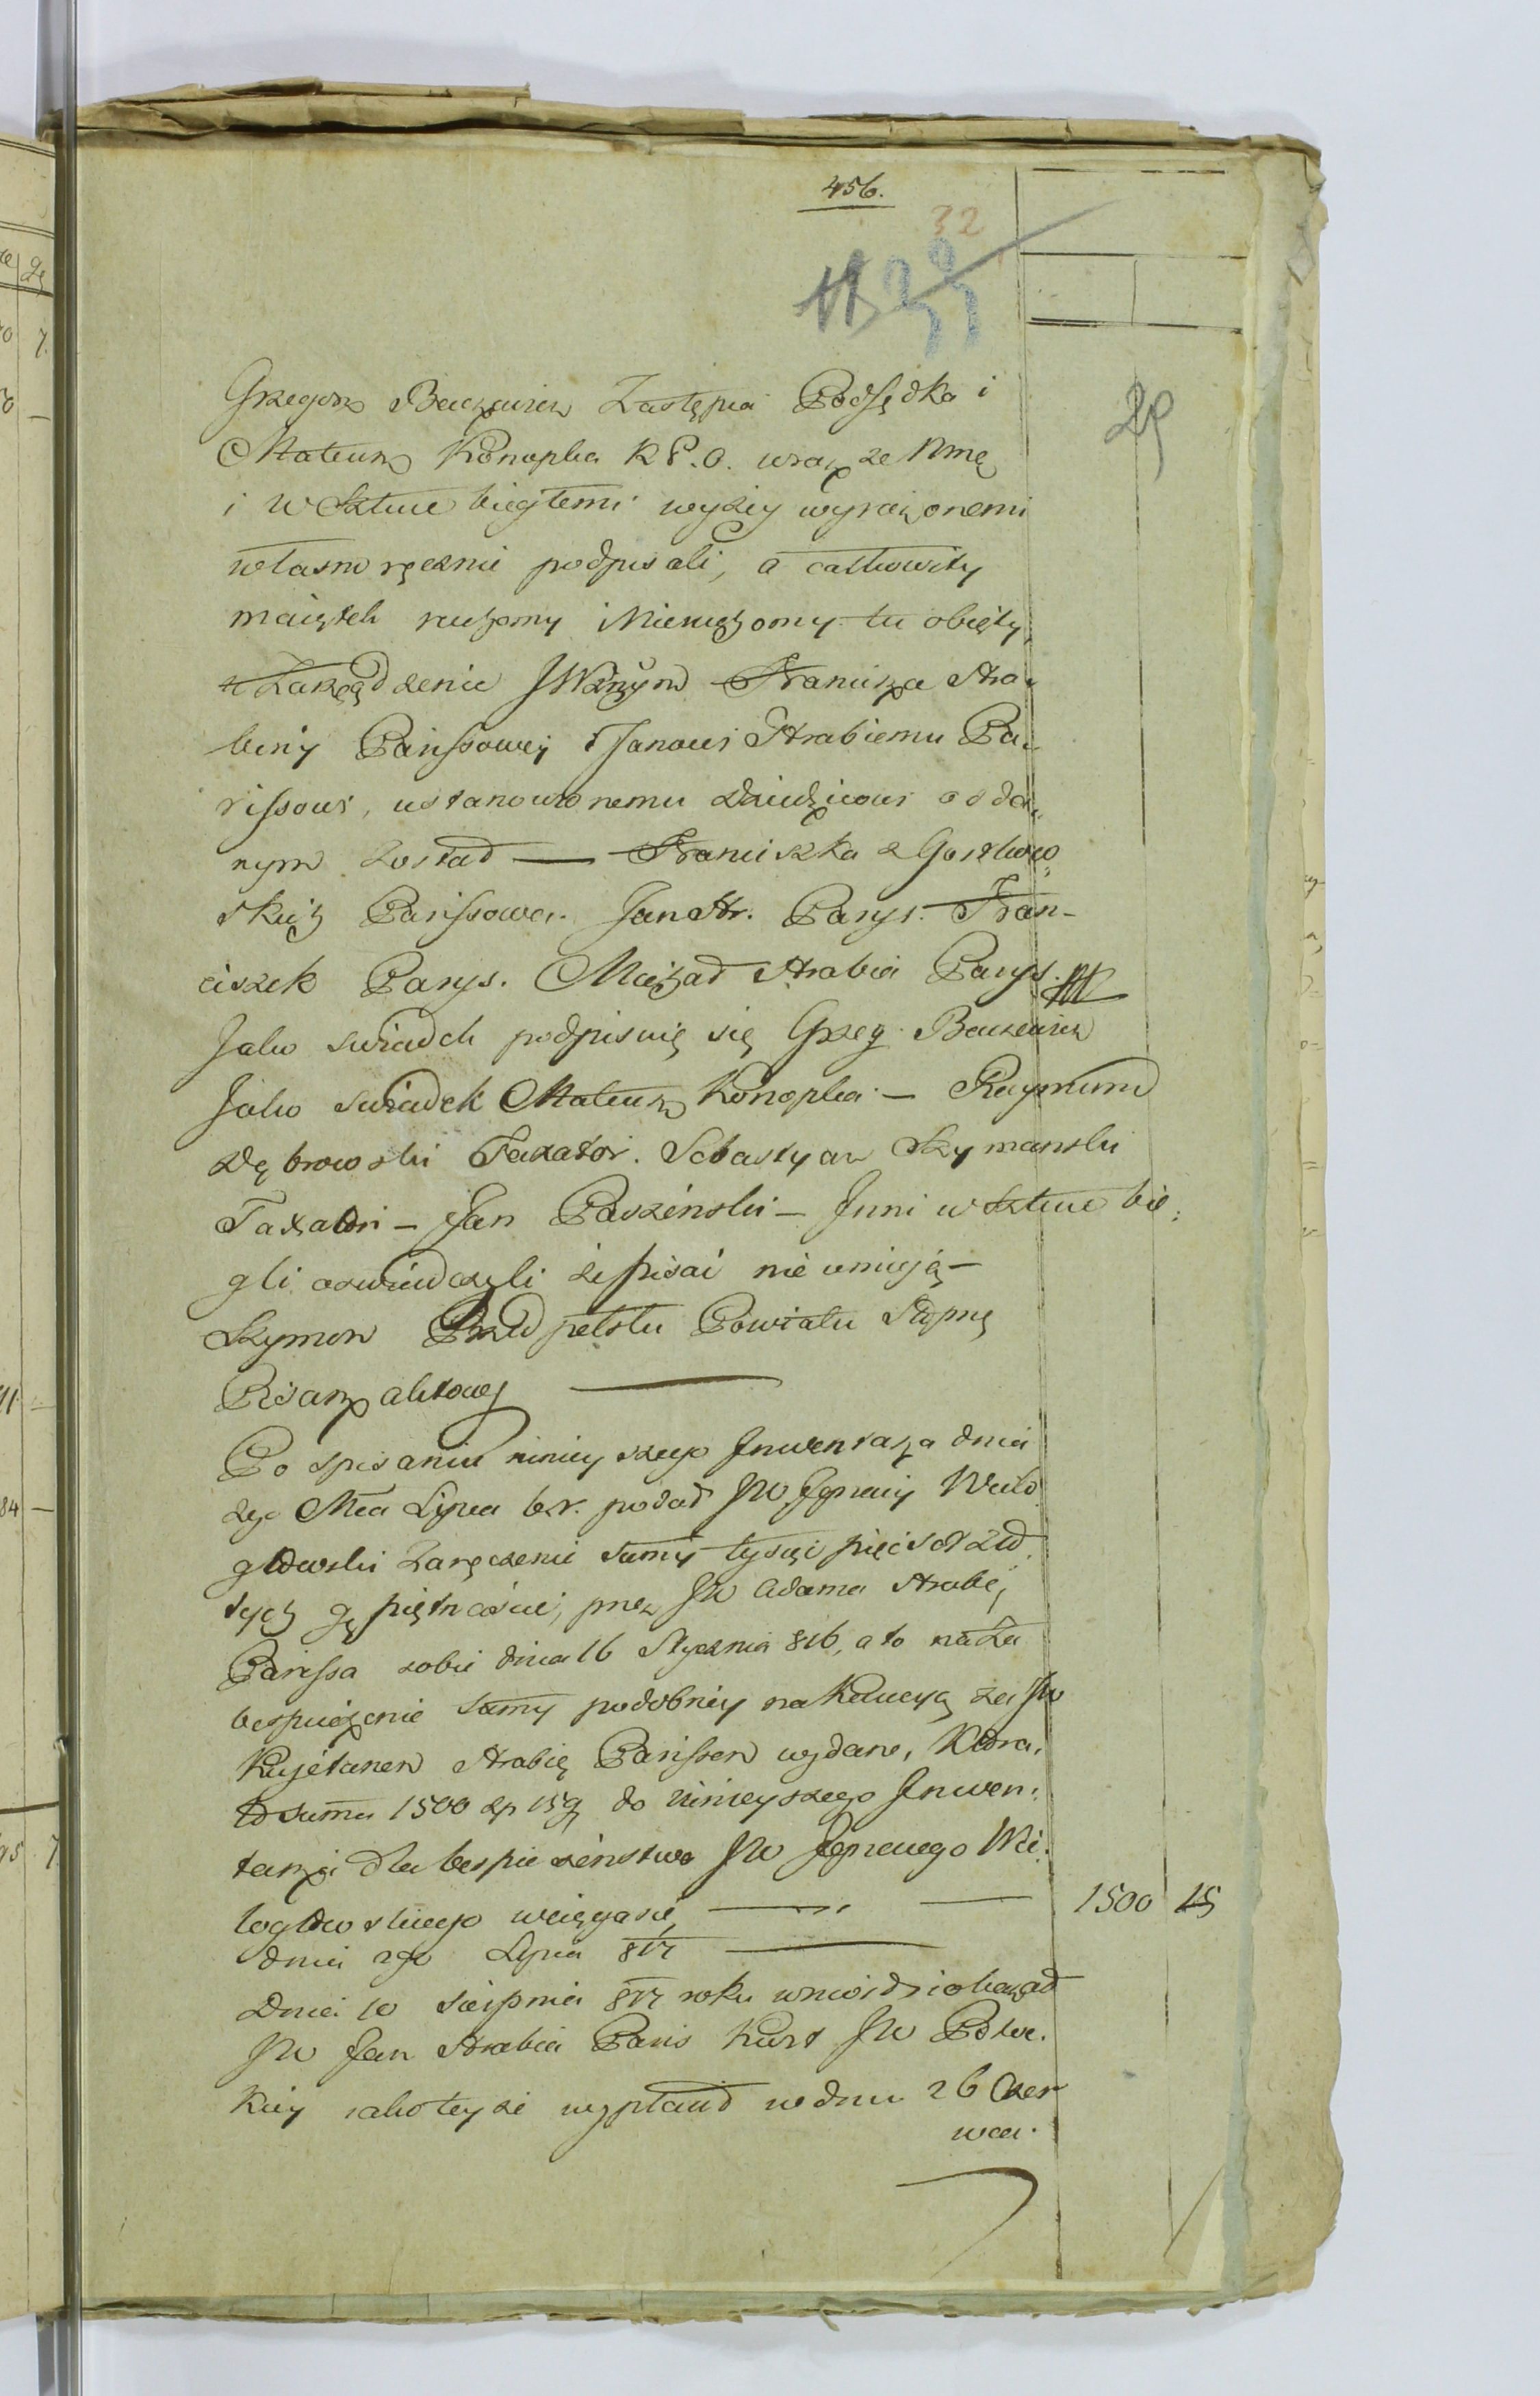 456.
32
29
Grzegorz Baczewicz Zastępca Podsędka i
Mateusz Konopka K P. O. wraz ze Mną
i w Sztuce biegłemi wyżey wyrażonemi
własno ręcznie podpisali, a całkowity
maiątek ruchomy i Nieruchomy tu obięty,
Zarządzenie Franciszce Hra-
biny Parissowey i Janowi Hrabiemu Pa-
rissowi, ustanowionemu Dziedzicowi oddа-
nym został — Franciszka z Gosłwow-
skich Parissowa. Jan Hr. Parys. Fran-
ciszek Parys. Michał Hrabia Parys.
Jako swiadek podpisuię się Grzeg. Baczewicz
Jako swiadek Mateusz Konopka — Raymund
Dąbrowski Taxator. Sebastyan Szymanski
Taxator — Jan Paszenski — Inni w Sztuce bie-
gli oswiadczyli że pisać nie umieją —
Szymon Powiatu Stopnic
Pisarz aktowy —
Po spisaniu ninieyszego Inwentarza dnia
2go Mca Lipca b.r. podał JW Jgnacy Wielo-
głowski Zaręczenie Summy tysiąc pięćset zło-
tych gr piętnaście, przez JW Adama Hrabię
Parissa sobie dnia 16 Stycznia 816, a to na Za-
bespieczenie Summy podobney na Kaucyą za JW
Kajetanem Hrabią Parissem wydane, Która
to summa 1500 zp 15 g do ninieyszego Inwen-
tarza dla bespieczeństwa JW Jgnacego Wie-
logłowskiego wciąga się — — 1500 15
dnia 2go Lipca 817 —
Dnia 10 Sierpnia 817 roku
JW Jan Hrabia Paris JW
Kiey iako teyże wypłacił w dniu 26 Czer
wca.